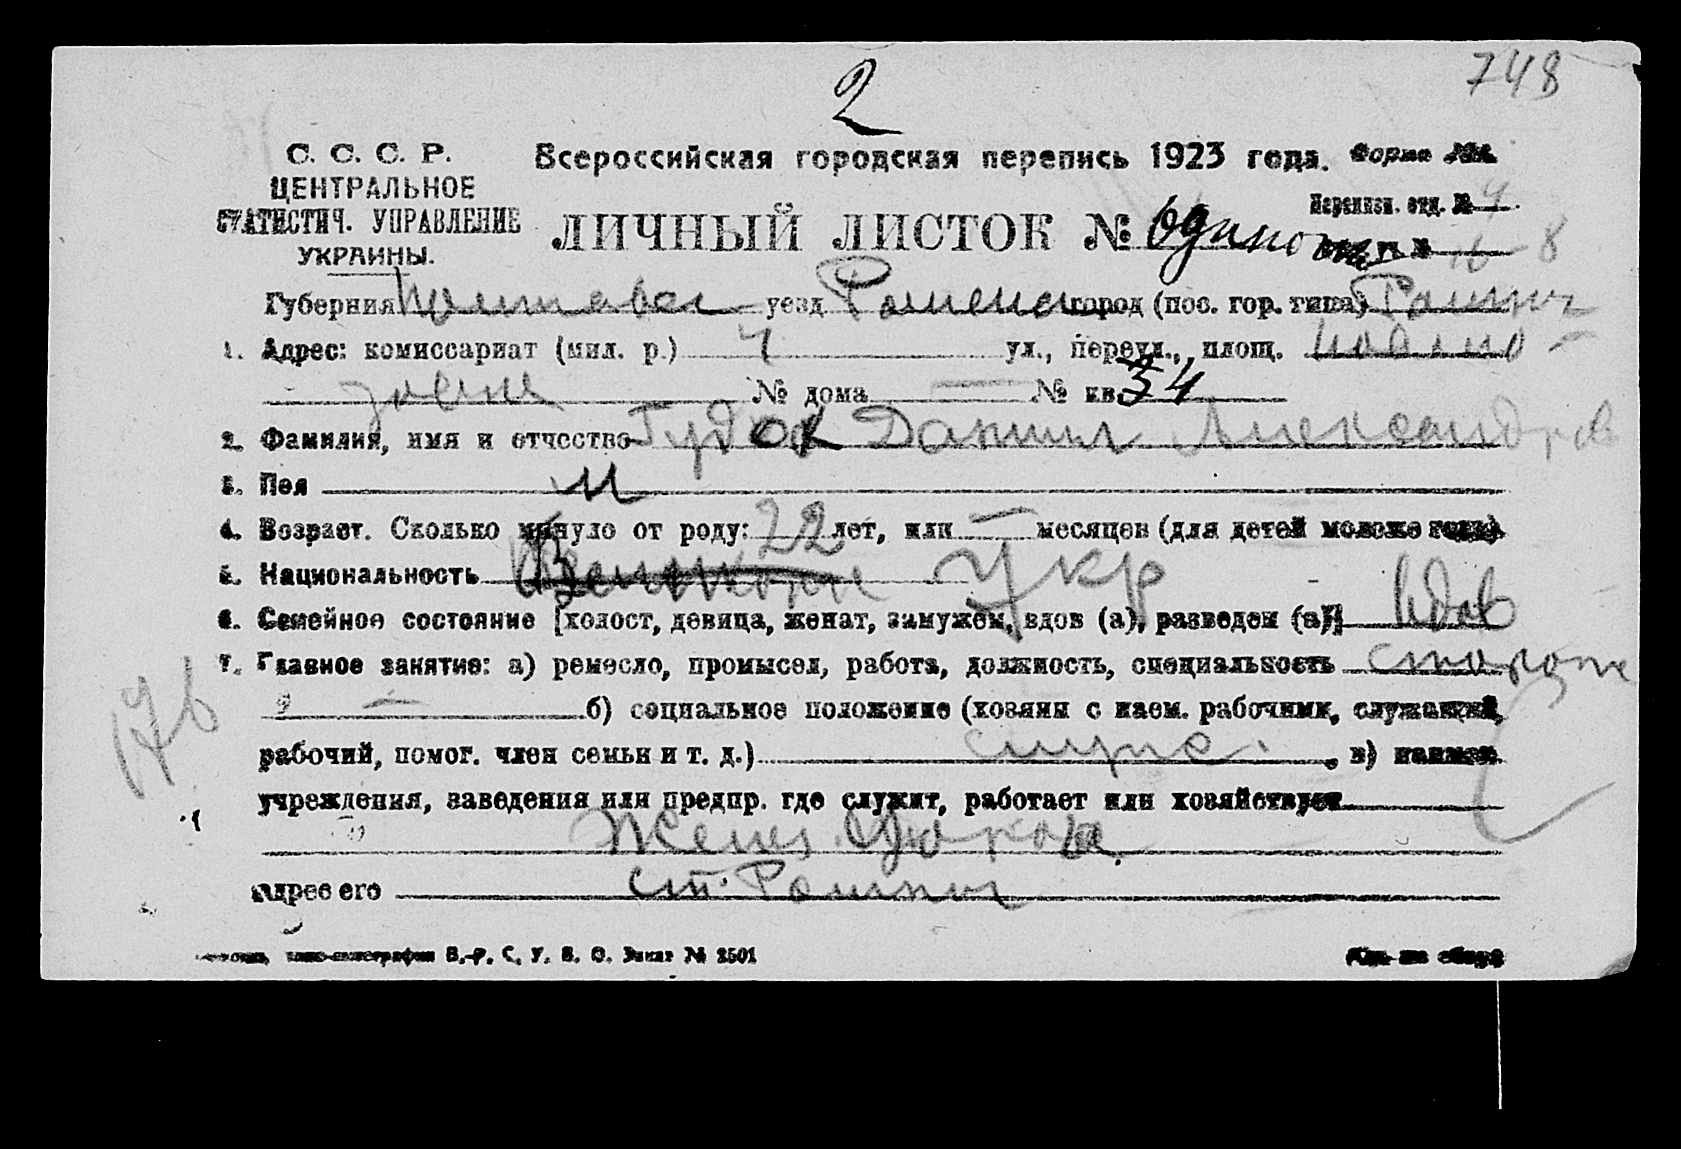 748
2
С. С. С. Р.
ЦЕНТРАЛЬНОЕ
СТАТИСТИЧ. УПРАВЛЕНИЕ
УКРАИНЫ.
Всероссийская городская перепись 1923 года. Форма
Переписн. отд. № 4
ЛИЧНЫЙ ЛИСТОК № одиночка № 8
Губерния Полтавск уезд Роменск город (пос. гор. типа) Ромны
1. Адрес: комиссариат (мил. р.) 4 ул., переул., площ.
№ дома — № кв. 34
2. Фамилия, имя и отчество Гудок Даниил Александров
3. Пол м
4. Возраст. Сколько минуло от роду: 22 лет, или — месяцев (для детей моложе года).
5. Национальность Укр
6. Семейное состояние [холост, девица, женат, замужем, вдов (а), разведен (а)] вдов
7. Главное занятие: а) ремесло, промысел, работа, должность, специальность сторож
176
— б) социальное положение (хозяин с наем. рабочими, служащий,
рабочий, помог. член семьи и т. д.) , в) наимен.
учреждения, заведения или предпр. где служит, работает или хозяйствует
Желез. дорога
адрес его ст. Ромны
В.-Р. С. У. В. О. Заказ № 2501